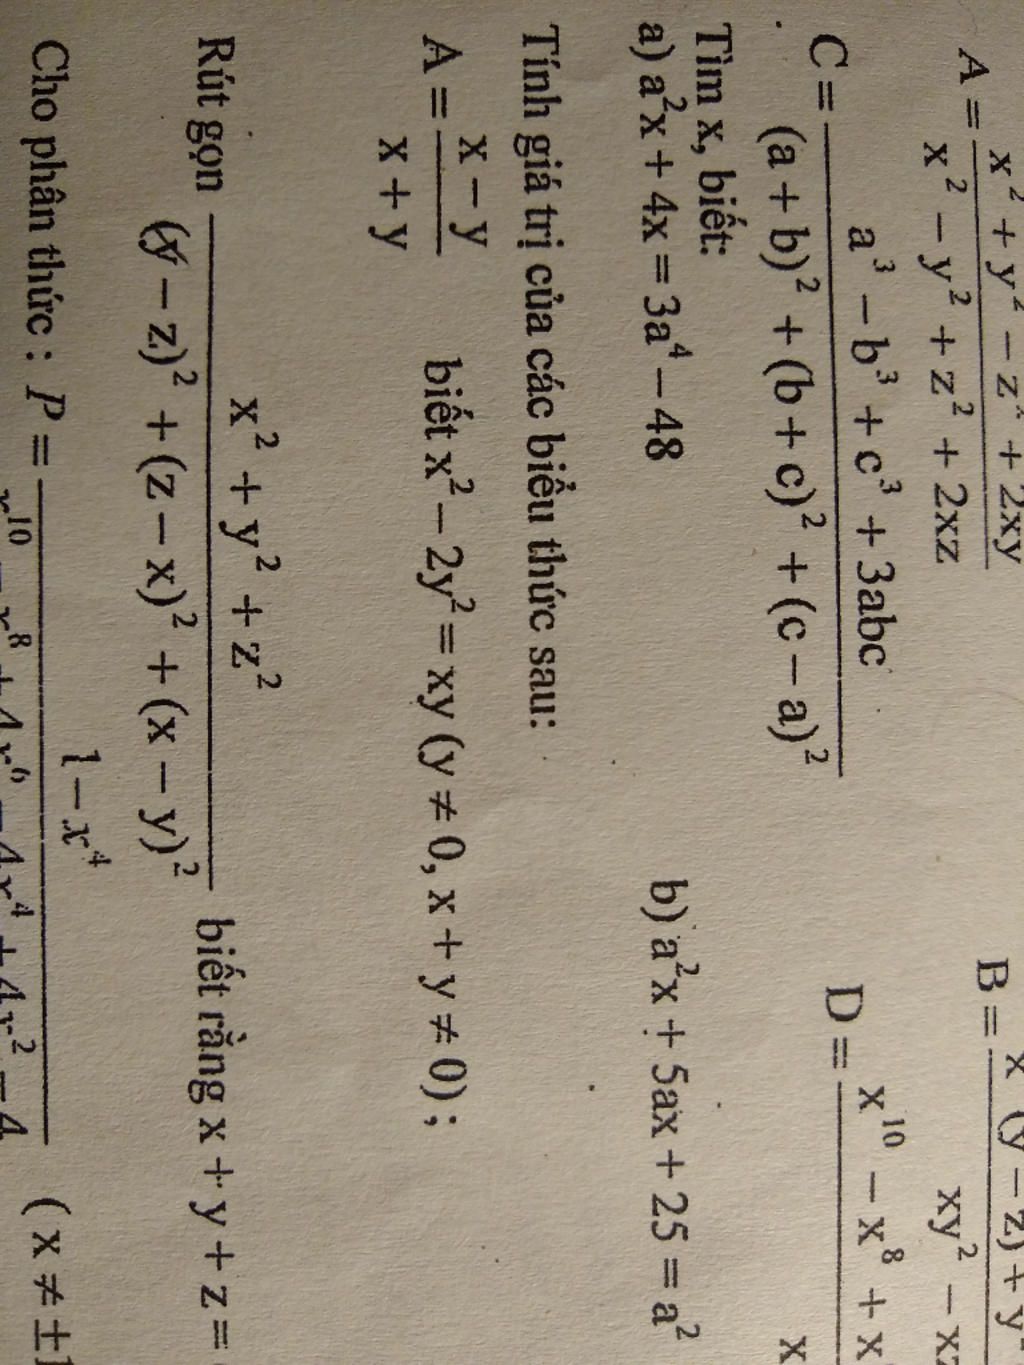 A = (x² + y² − z² + 2xy) / (x² − y² + z² + 2xz)
B =
C = (a³ − b³ + c³ + 3abc) / ((a + b)² + (b + c)² + (c − a)²)
D = x¹⁰ − x⁸ + x
Tìm x, biết:
a) a²x + 4x = 3a⁴ − 48 b) a²x + 5ax + 25 = a²
Tính giá trị của các biểu thức sau:
A = (x − y) / (x + y) biết x² − 2y² = xy (y ≠ 0, x + y ≠ 0) ;
Rút gọn (x² + y² + z²) / ((y − z)² + (z − x)² + (x − y)²) biết rằng x + y + z =
Cho phân thức : P = (1 − x⁴) / (x¹⁰ − x⁸ + 4x⁶ − 4x⁴ + 4x² − 4) ( x ≠ ±1